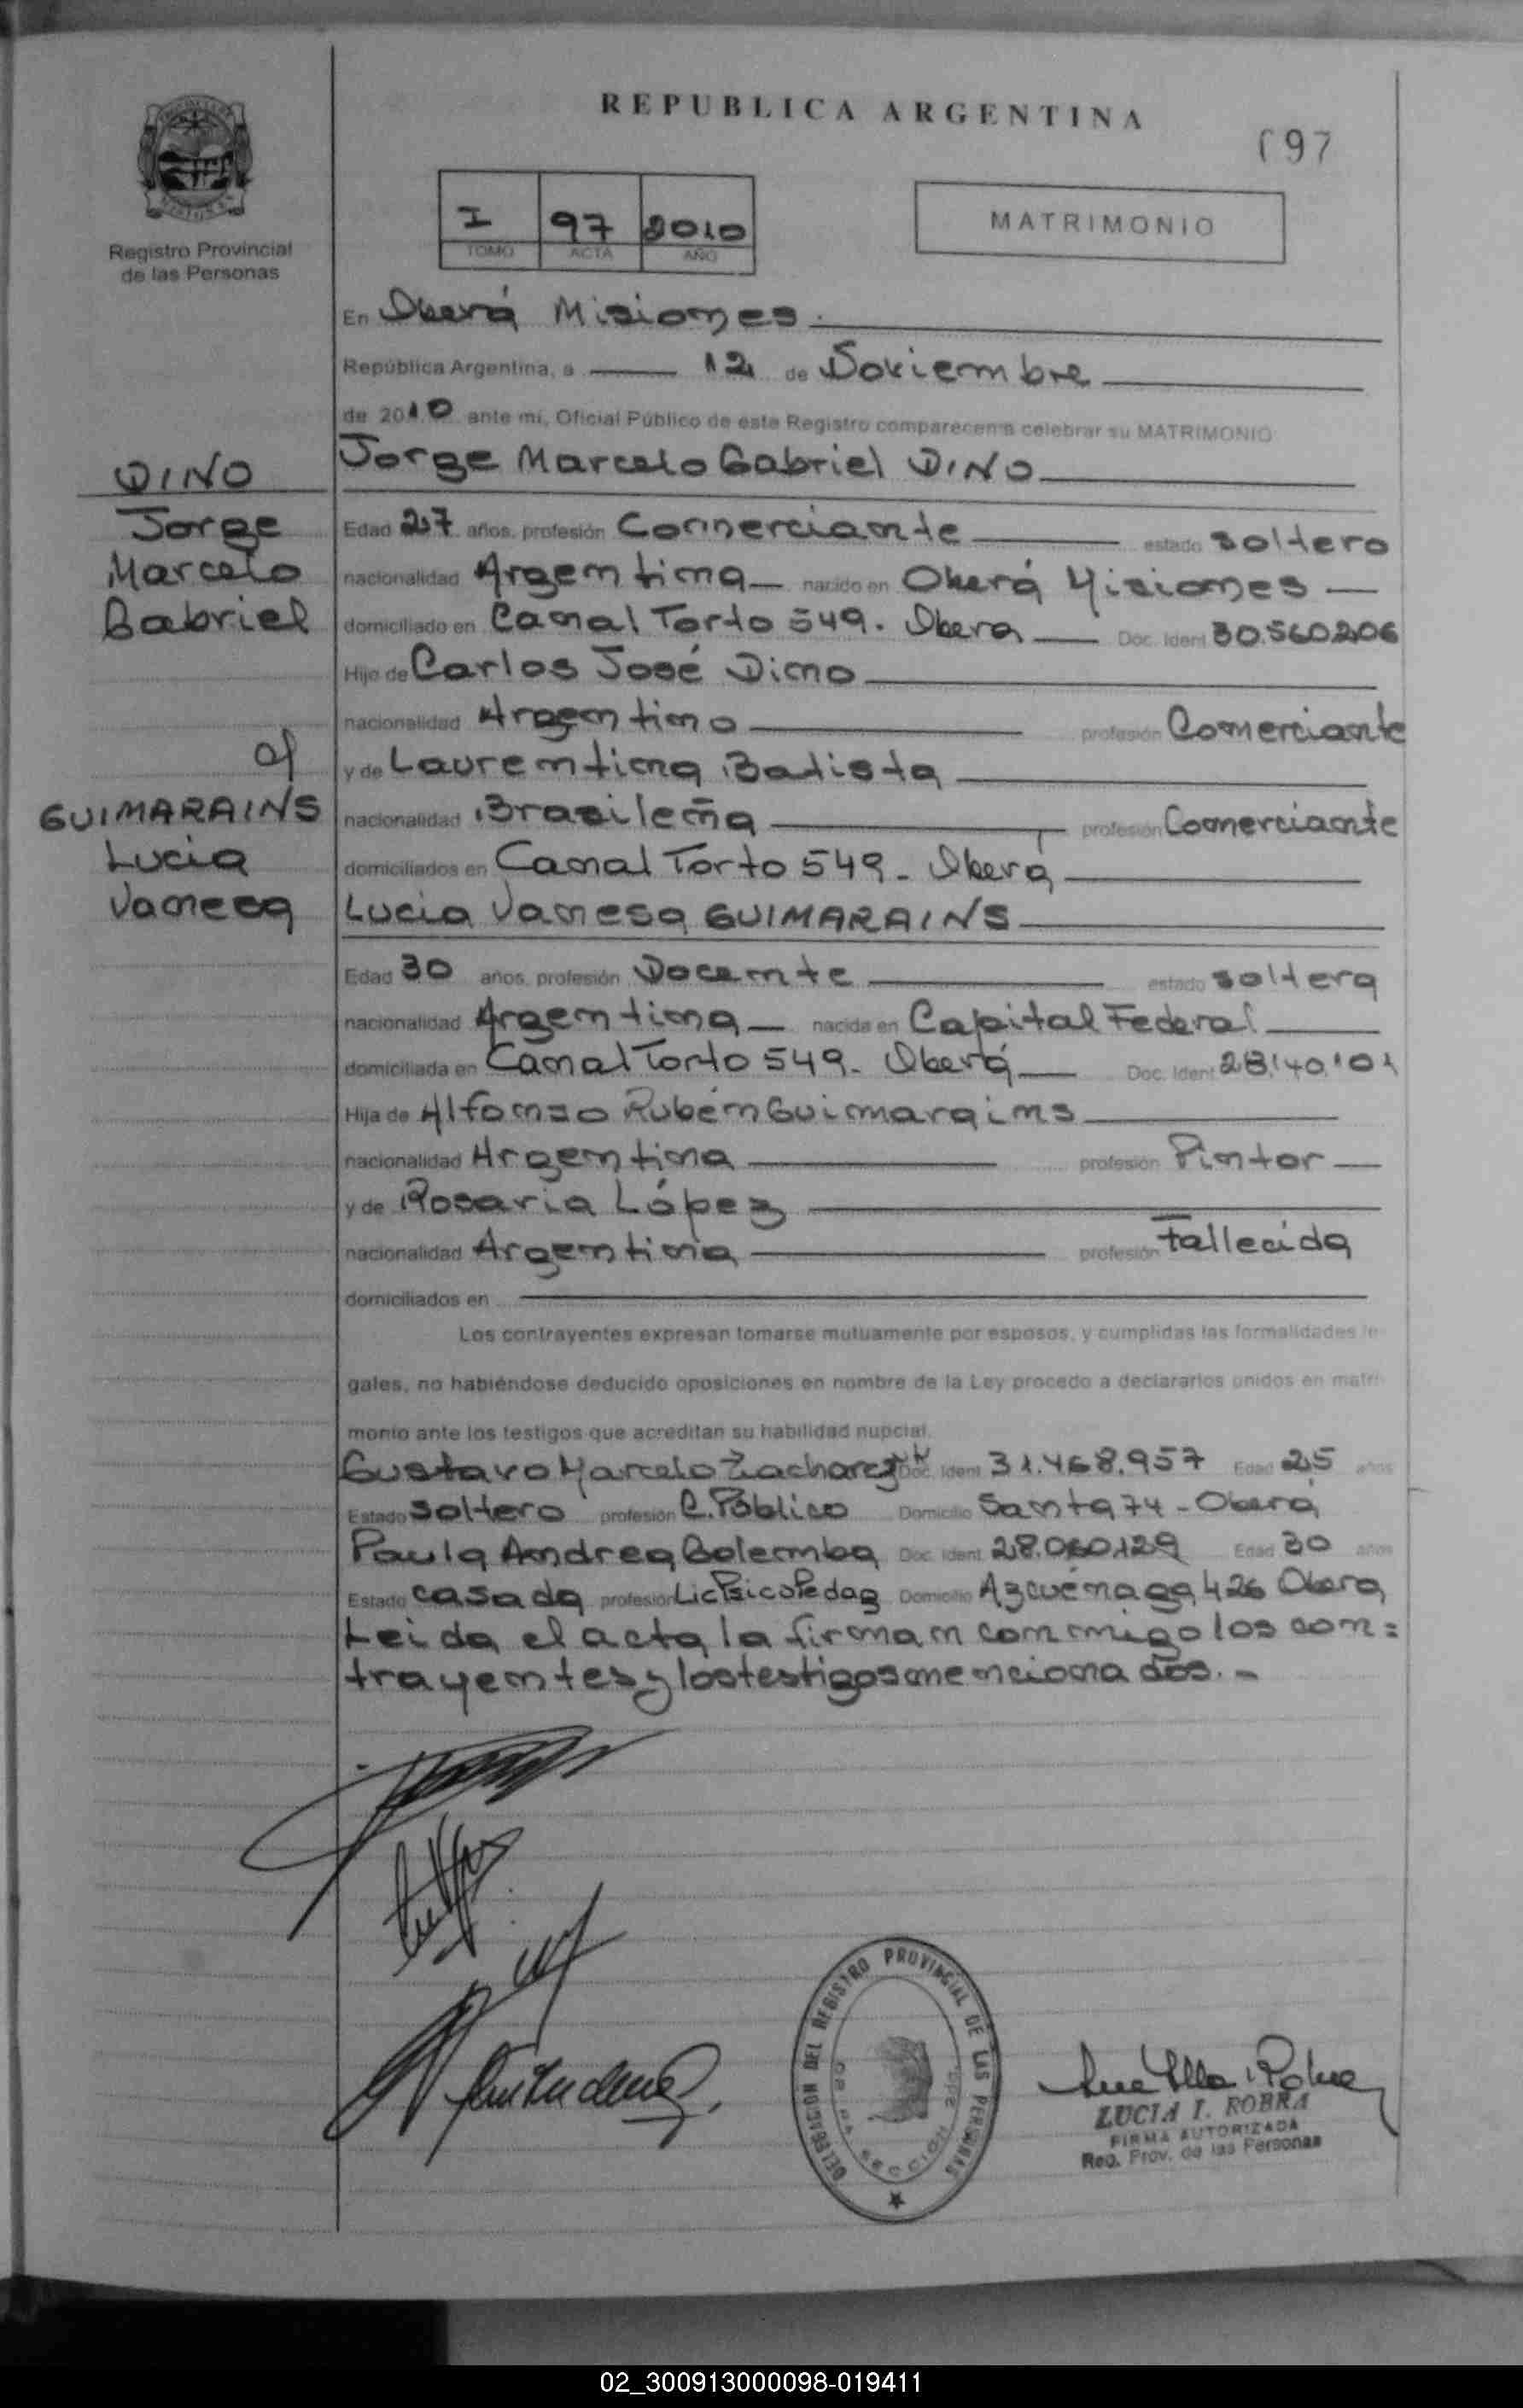 REPUBLICA ARGENTINA
97
Registro Provincial
de las Personas
I 97 2010
TOMO ACTA AÑO
MATRIMONIO
En Oberá Misiones.
República Argentina, a 12 de Noviembre
de 2010 ante mi, Oficial Público de este Registro comparecen a celebrar su MATRIMONIO
Jorge Marcelo Gabriel DINO
DINO
Jorge
Marcelo
Gabriel
c/
GUIMARAINS
Lucia
Vanesa
Edad 27 años, profesión Comerciante estado soltero
nacionalidad Argentina nacido en Oberá Misiones
domiciliado en Canal Torto 549. Obera Doc. Ident 30.560.206
Hijo de Carlos José Dino
nacionalidad Argentino profesión Comerciante
y de Laurentina Batista
nacionalidad Brasileña profesión Comerciante
domiciliados en Canal Torto 549. Oberá
Lucia Vanesa GUIMARAINS
Edad 30 años, profesión Docente estado soltera
nacionalidad Argentina nacida en Capital Federal
domiciliada en Canal Torto 549. Oberá Doc. Ident 28.140.101
Hija de Alfonso Rubén Guimarains
nacionalidad Argentina profesión Pintor
y de Rosaria López
nacionalidad Argentina profesión Fallecida
domiciliados en
Los contrayentes expresan tomarse mutuamente por esposos, y cumplidas las formalidades le
gales, no habiéndose deducido oposiciones en nombre de la Ley procedo a declararlos unidos en matri
monio ante los testigos que acreditan su habilidad nupcial.
Gustavo Marcelo Doc. Ident 31.468.957 Edad 25 años
Estado soltero profesión C. Público Domicilio Santa 74 - Oberá
Paula Andrea Golemba Doc. Ident 28.060.129 Edad 30 años
Estado casada profesión Lic Psicopedag Domicilio Azcuénaga 426 Obera
Leida el acta la firman conmigo los con=
trayentes y los testigos mencionados. -
DELEGACION DEL REGISTRO PROVINCIAL DE LAS PERSONAS
SECCION 2da.
LUCIA I. ROBRA
FIRMA AUTORIZADA
Reg. Prov. de las Personas
02_300913000098-019411